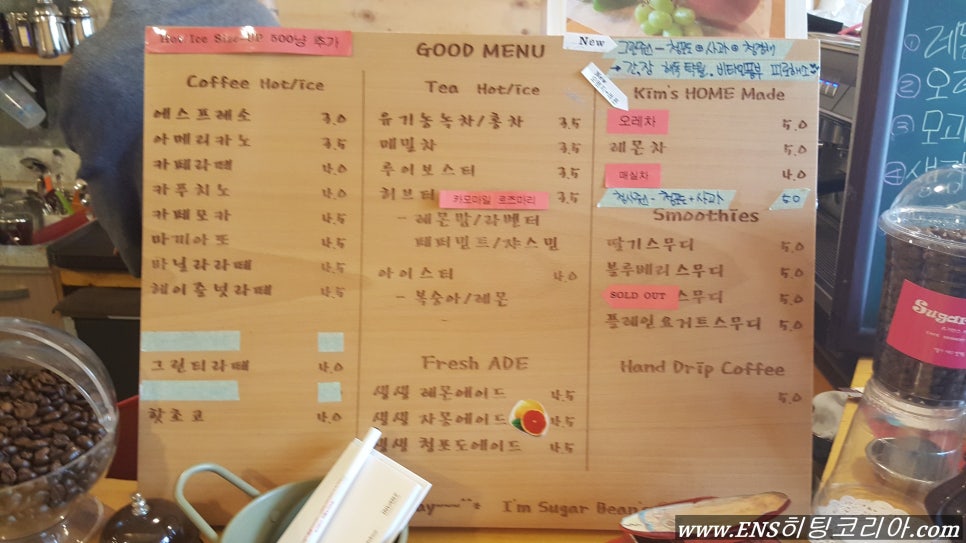 Hot/Ice Size-UP 500냥 추가
GOOD MENU
New
그린주스 - 청포도 사과
→ 간.장 해독
Coffee Hot/ice
에스프레소 3.0
아메리카노 3.5
카페라떼 4.0
카푸치노 4.0
카페모카 4.5
마끼아또 4.5
바닐라라떼 4.5
헤이즐넛라떼 4.5
그린티라떼 4.0
핫초코 4.0
Tea Hot/ice
유기농녹차/홍차 3.5
메밀차 3.5
루이보스티 3.5
허브티 카모마일 로즈마리 3.5
- 레몬밤/라벤더
페퍼민트/쟈스민
아이스티 4.0
- 복숭아/레몬
Fresh ADE
생생 레몬에이드 4.5
생생 자몽에이드 4.5
생생 청포도에이드 4.5
Kim's HOME Made
오레차 5.0
레몬차 5.0
매실차 4.0
청포도+사과 5.0
Smoothies
딸기스무디 5.0
블루베리스무디 5.0
SOLD OUT 스무디 5.0
플레인요거트스무디 5.0
Hand Drip Coffee
5.0
I'm Sugar Bean
Sugar
① 레몬
② 오
③ 모과
④ 생강
www.ENS히팅코리아.com